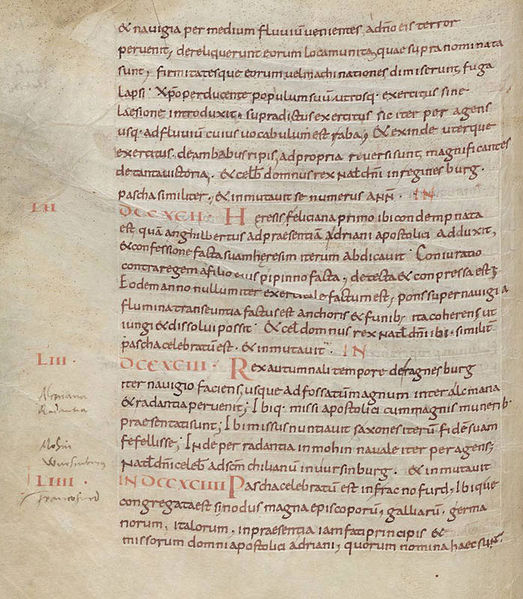 & navigia per medium fluviū venientes, adn̄o eis terror
pervenit, dereliquerunt eorum loca munita, quae supra nominata
sunt, firmitatesque eorum vel machinationes dimiserunt, fuga
lapsi. Xp̄o perducente populum suū utrosq; exercitus sine
laesione introduxit, supradictus exercitus sic iter peragens
usq; ad fluviū cuius vocabulum est raba, & exinde uterque
exercitus, de ambabus ripis, ad propria reversi sunt, magnificantes
de tanta victoria, & celeb̄ domnus rex natl̄ dn̄i in reginesburg.
pascha similiter, & inmutavit se numerus ANN̄. IN
LII DCCXCII. Heresis feliciana primo ibi condempnata
est quā anghilbertus ad praesentiā adriani apostolici adduxit,
& confessione facta suam heresim iterum abdicavit. Coniuratio
contra regem a filio eius pipinno facta, detecta & conpressa est;
Eodem anno nullum iter exercitale factum est, pons super navigia
flumina transeuntia factus est anchoris & funib; ita coherens ut
iungi & dissolvi possit. & cel̄ domnus rex natl̄ dn̄i ibi. similit̄
pascha celebratum est. & inmutavit. IN
LIII. DCCXCIII. Rex autumnali tempore de ragnesburg
iter navigio faciens, usque ad fossatū magnum inter alcmana
& radantia pervenit, Ibiq; missi apostolici cum magnis munerib;
praesentati sunt, Ibi missus nuntiavit saxones iterū fidē suam
fefellisse; Inde per radantia in mohin navale iter peragens,
natl̄ dn̄i celeb̄ ad scm̄ chilianū in wirsinburg. & inmutavit
LIIII IN DCCXCIIII Pascha celebratū est in franconofurd, Ibique
congregata est sinodus magna episcoporū, galliarū, germa
norum, italorum, in praesentia iamfati principis &
missorum domni apostolici adriani, quorum nomina haec sunt
Almana
Radantia
Mohin
Wirsinburg
Franconofurd